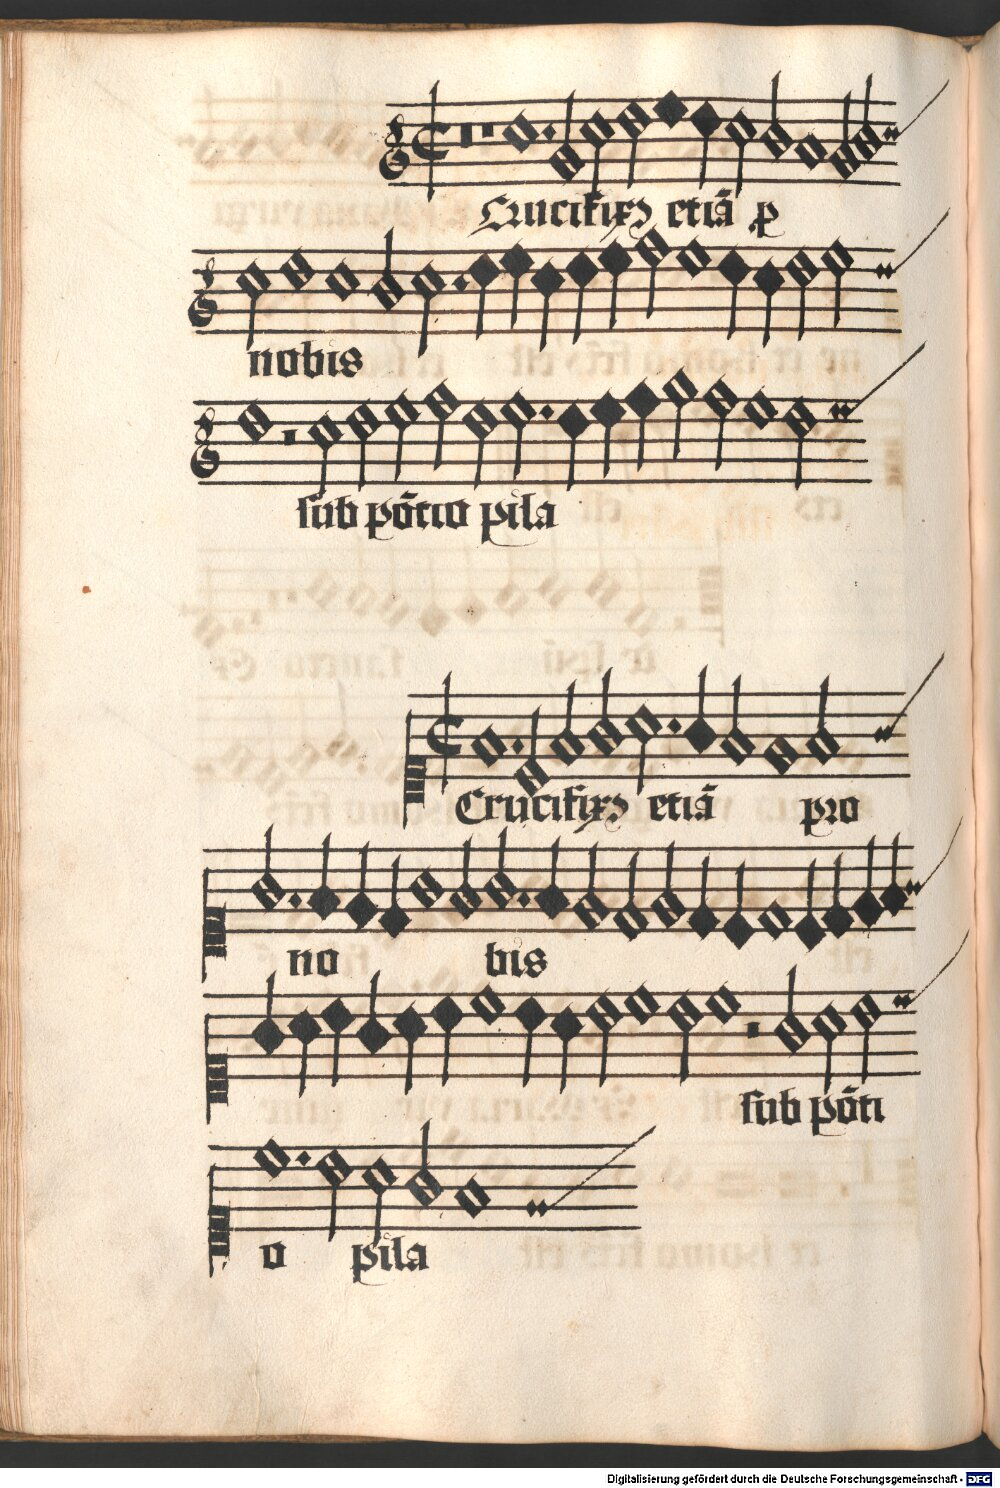 Crucifixꝯ etiā ꝓ
nobis
sub pōtio pila
Crucifixꝯ etiā pro
no bis
sub pōti
o pila
Digitalisierung gefördert durch die Deutsche Forschungsgemeinschaft - DFG